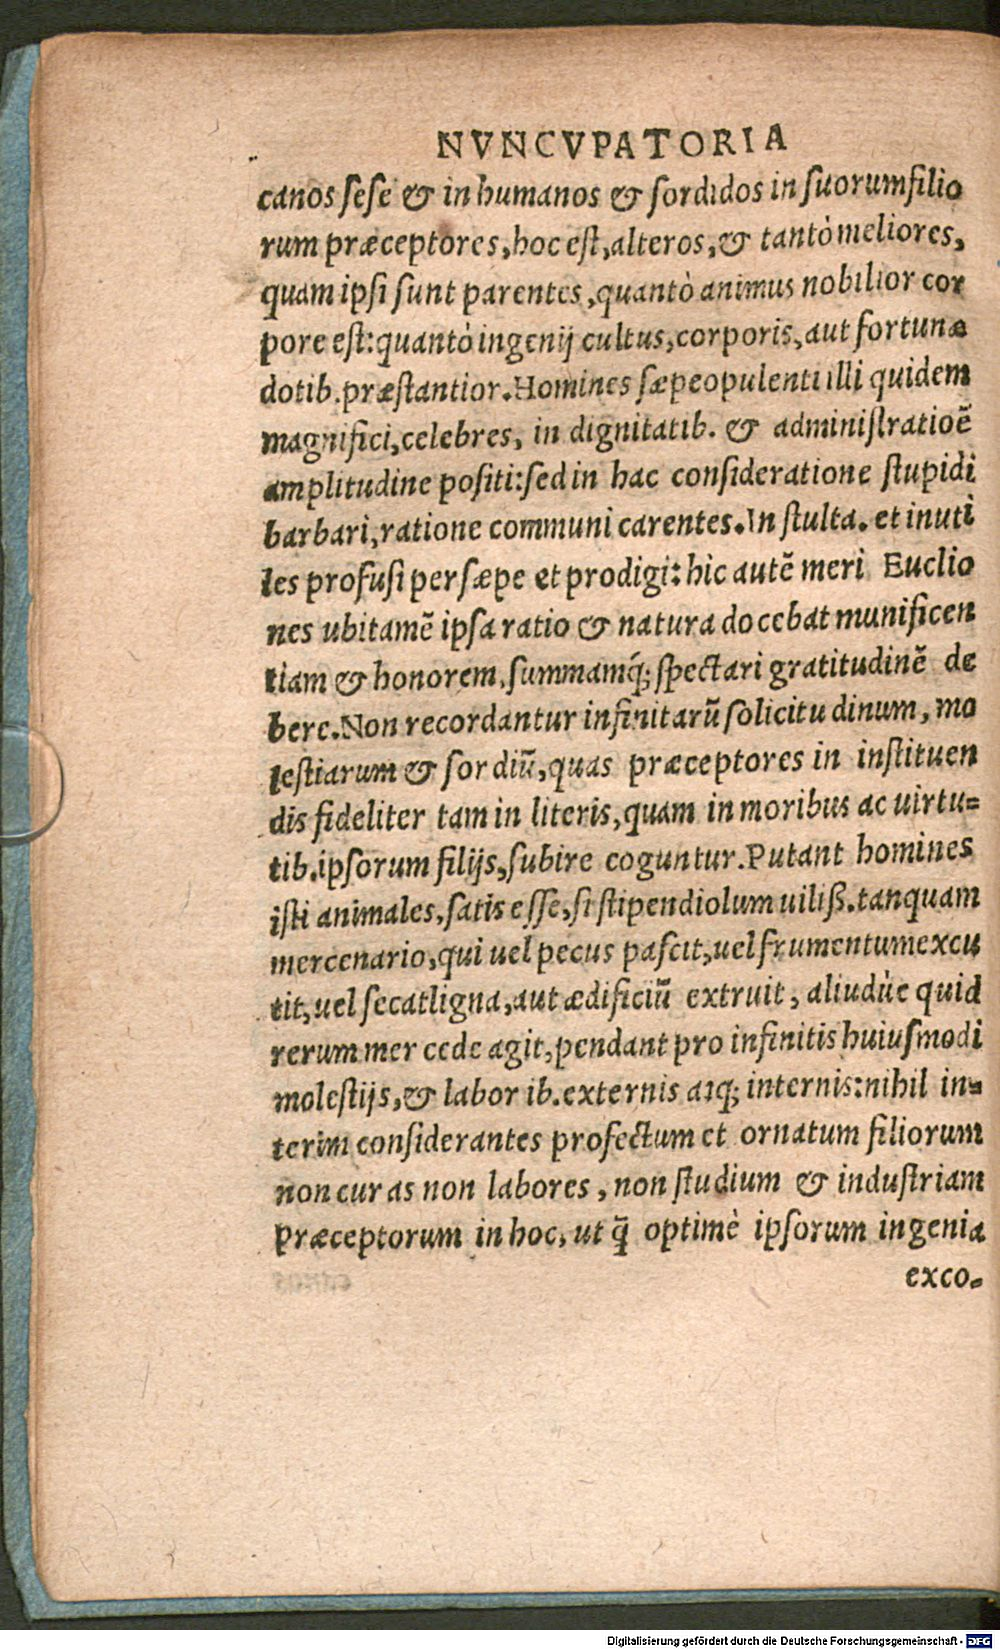 NVNCVPATORIA
canos sese & inhumanos & sordidos in suorum filio
rum præceptores, hoc est, alteros, & tantò meliores,
quam ipsi sunt parentes, quantò animus nobilior cor
pore est: quantò ingenij cultus, corporis, aut fortunæ
dotib. præstantior. Homines sæpe opulenti illi quidem
magnifici, celebres, in dignitatib. & administratioẽ
amplitudine positi: sed in hac consideratione stupidi
barbari, ratione communi carentes. In stulta. et inuti
les profusi persæpe et prodigi: hic autẽ meri Euclio
nes ubi tamẽ ipsa ratio & natura docebat munificen
tiam & honorem, summamq́; spectari gratitudinẽ de
bere. Non recordantur infinitarũ solicitudinum, mo
lestiarum & sordiũ, quas præceptores in instituen
dis fideliter tam in literis, quam in moribus ac uirtu=
tib. ipsorum filijs, subire coguntur. Putant homines
isti animales, satis esse, si stipendiolum uiliß. tanquam
mercenario, qui uel pecus pascit, uel frumentum excu
tit, uel secat ligna, aut ædificiũ extruit, aliudùe quid
rerum mercede agit, pendant pro infinitis huiusmodi
molestijs, & laborib. externis atq; internis: nihil in=
terim considerantes profectum et ornatum filiorum
non curas non labores, non studium & industriam
præceptorum in hoc, ut q̃ optimè ipsorum ingenia
exco=
Digitalisierung gefördert durch die Deutsche Forschungsgemeinschaft - DFG